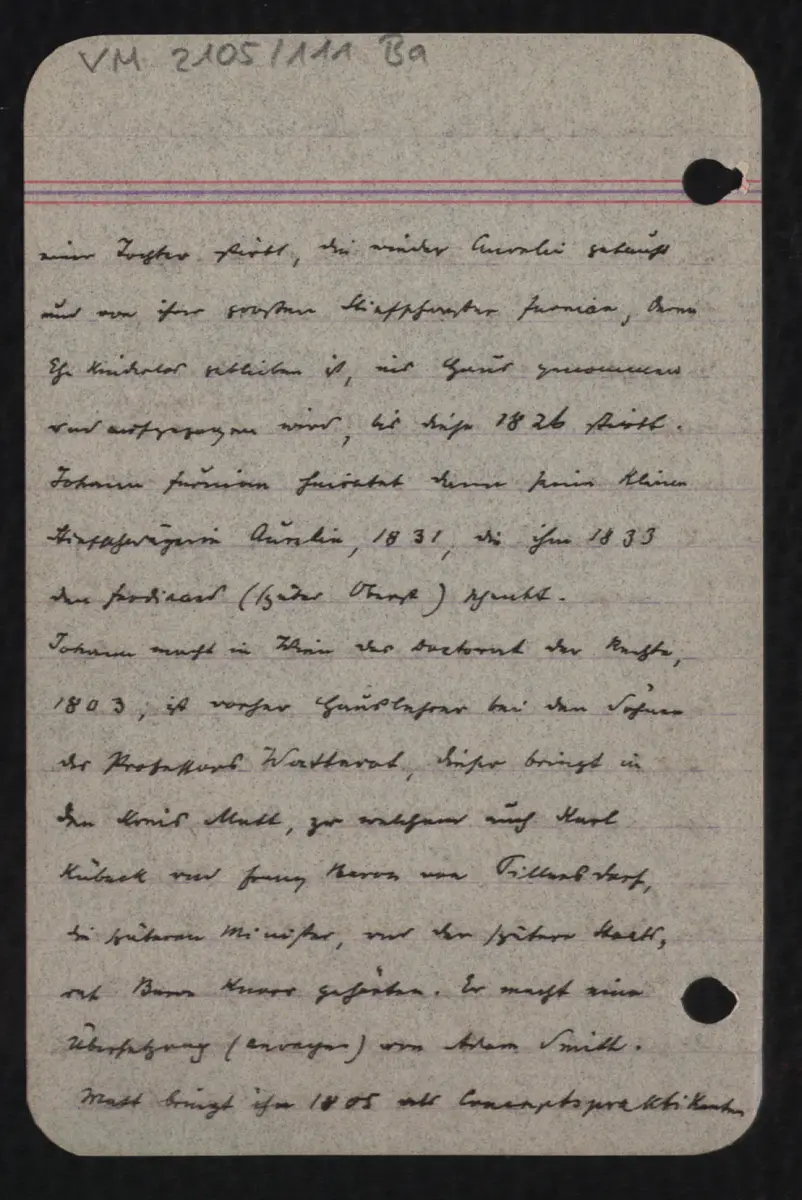 VM 2105/111 Ba
einer Tochter stirbt, die wieder Aurelie getauft
und von ihrer grossten Stiefschwester Furnian, deren
Ehe kinderlos geblieben ist, ins Haus genommen
und aufgezogen wird, bis diese 1826 stirbt.
Johann Furnian heiratet dann seine kleine
Stiefschwägerin Aurelie, 1831, die ihm 1833
den Ferdinand (später Oberst) schenkt.
Johann macht in Wien das Doctorat der Rechte,
1803, ist vorher Hauslehrer bei den Söhnen
des Professors Watterot, dieser bringt in
den Kreis Matt, zu welchem auch Karl
Kübeck und Franz Baron von Pillersdorf,
die späteren Minister, und der spätere Staats,
rat Baron Knorr gehörten. Er macht eine
Übersetzung (anonym) von Adam Smith.
Matt bringt ihn 1805 als Conceptspraktikanten